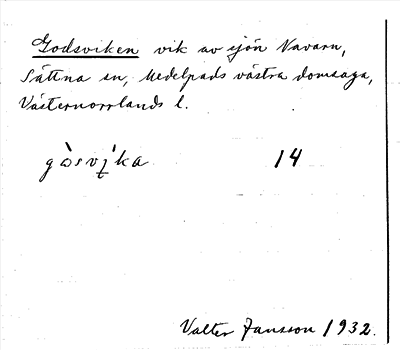 Godsviken vik av sjön Navarn,
Sättna sn, Medelpads västra domsaga,
Västernorrlands l.
gòsvi̜ˈka 14
Valter Jansson 1932.